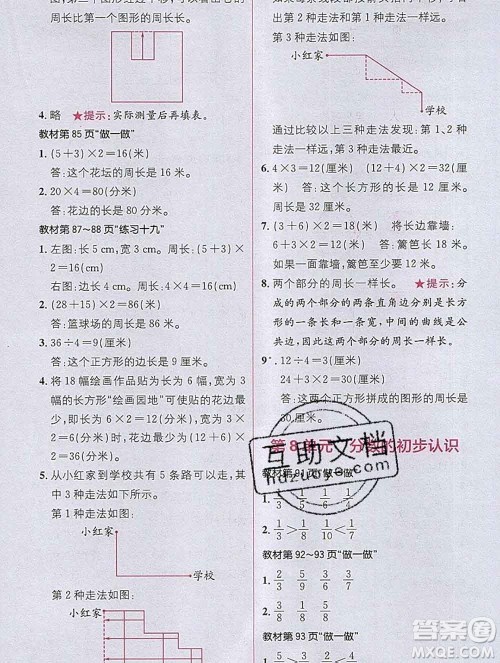 周长比第一个图形的周长长。
4. 略 ★提示:实际测量后再填表。
教材第85页“做一做”
1. (5+3)×2=16(米)
答:这个花坛的周长是16米。
2. 20×4=80(分米)
答:花边的长是80分米。
教材第87~88页“练习十九”
1. 左图:长5 cm,宽3 cm。周长:(5+3)
×2=16(厘米)
右图:长2 cm,宽2 cm。周长:2×4=8(厘米)
2. (28+15)×2=86(米)
答:篮球场的周长是86米。
3. 36÷4=9(厘米)
答:这个正方形的边长是9厘米。
4. 将18幅绘画作品贴为长为6幅,宽为3幅
的长方形“绘画园地”可使贴的花边最
少。花边最少是(6×2+3×2)×2=36(分
米)。
5. 从小红家到学校共有5条路可以走,其
中3种走法如下所示。
第1种走法如图:
小红家
学校
第2种走法如图:
小红家
和第1种走法一样远。
第3种走法如图:
小红家
学校
通过比较以上三种走法发现:第1、2种
走法一样远,第3种走法最近。
6. 4×3=12(厘米) (12+4)×2=32(厘米)
答:这个长方形的长是12厘米,
周长是32厘米。
7. (6+3)×2=18(米) 将长边靠墙:
6+3+3=12(米) 答:篱笆长18米。
如果一面靠墙,篱笆至少要12米。
8. 两个部分的周长一样长。★提示:分
成的两个部分的两条直角边分别是长方
形的一条长和一条宽,中间的曲线是公
共边,因此两个部分的周长一样长。
9*. 12÷4=3(厘米)
24+3×2=30(厘米)
答:这两个正方形拼成的图形的周长是
30厘米。
第8单元 分数的初步认识
教材第91页“做一做”
1. 1/3>1/8 1/6<1/4
2. 1/2>1/3 1/8>1/9
教材第92~93页“做一做”
1. 2/3 5/9 3/6 3/4
2. 1/3 5/8 4/9 2/5
教材第93页“做一做”
互助文档
hdzuoye.com
答案圈
MXQE.COM